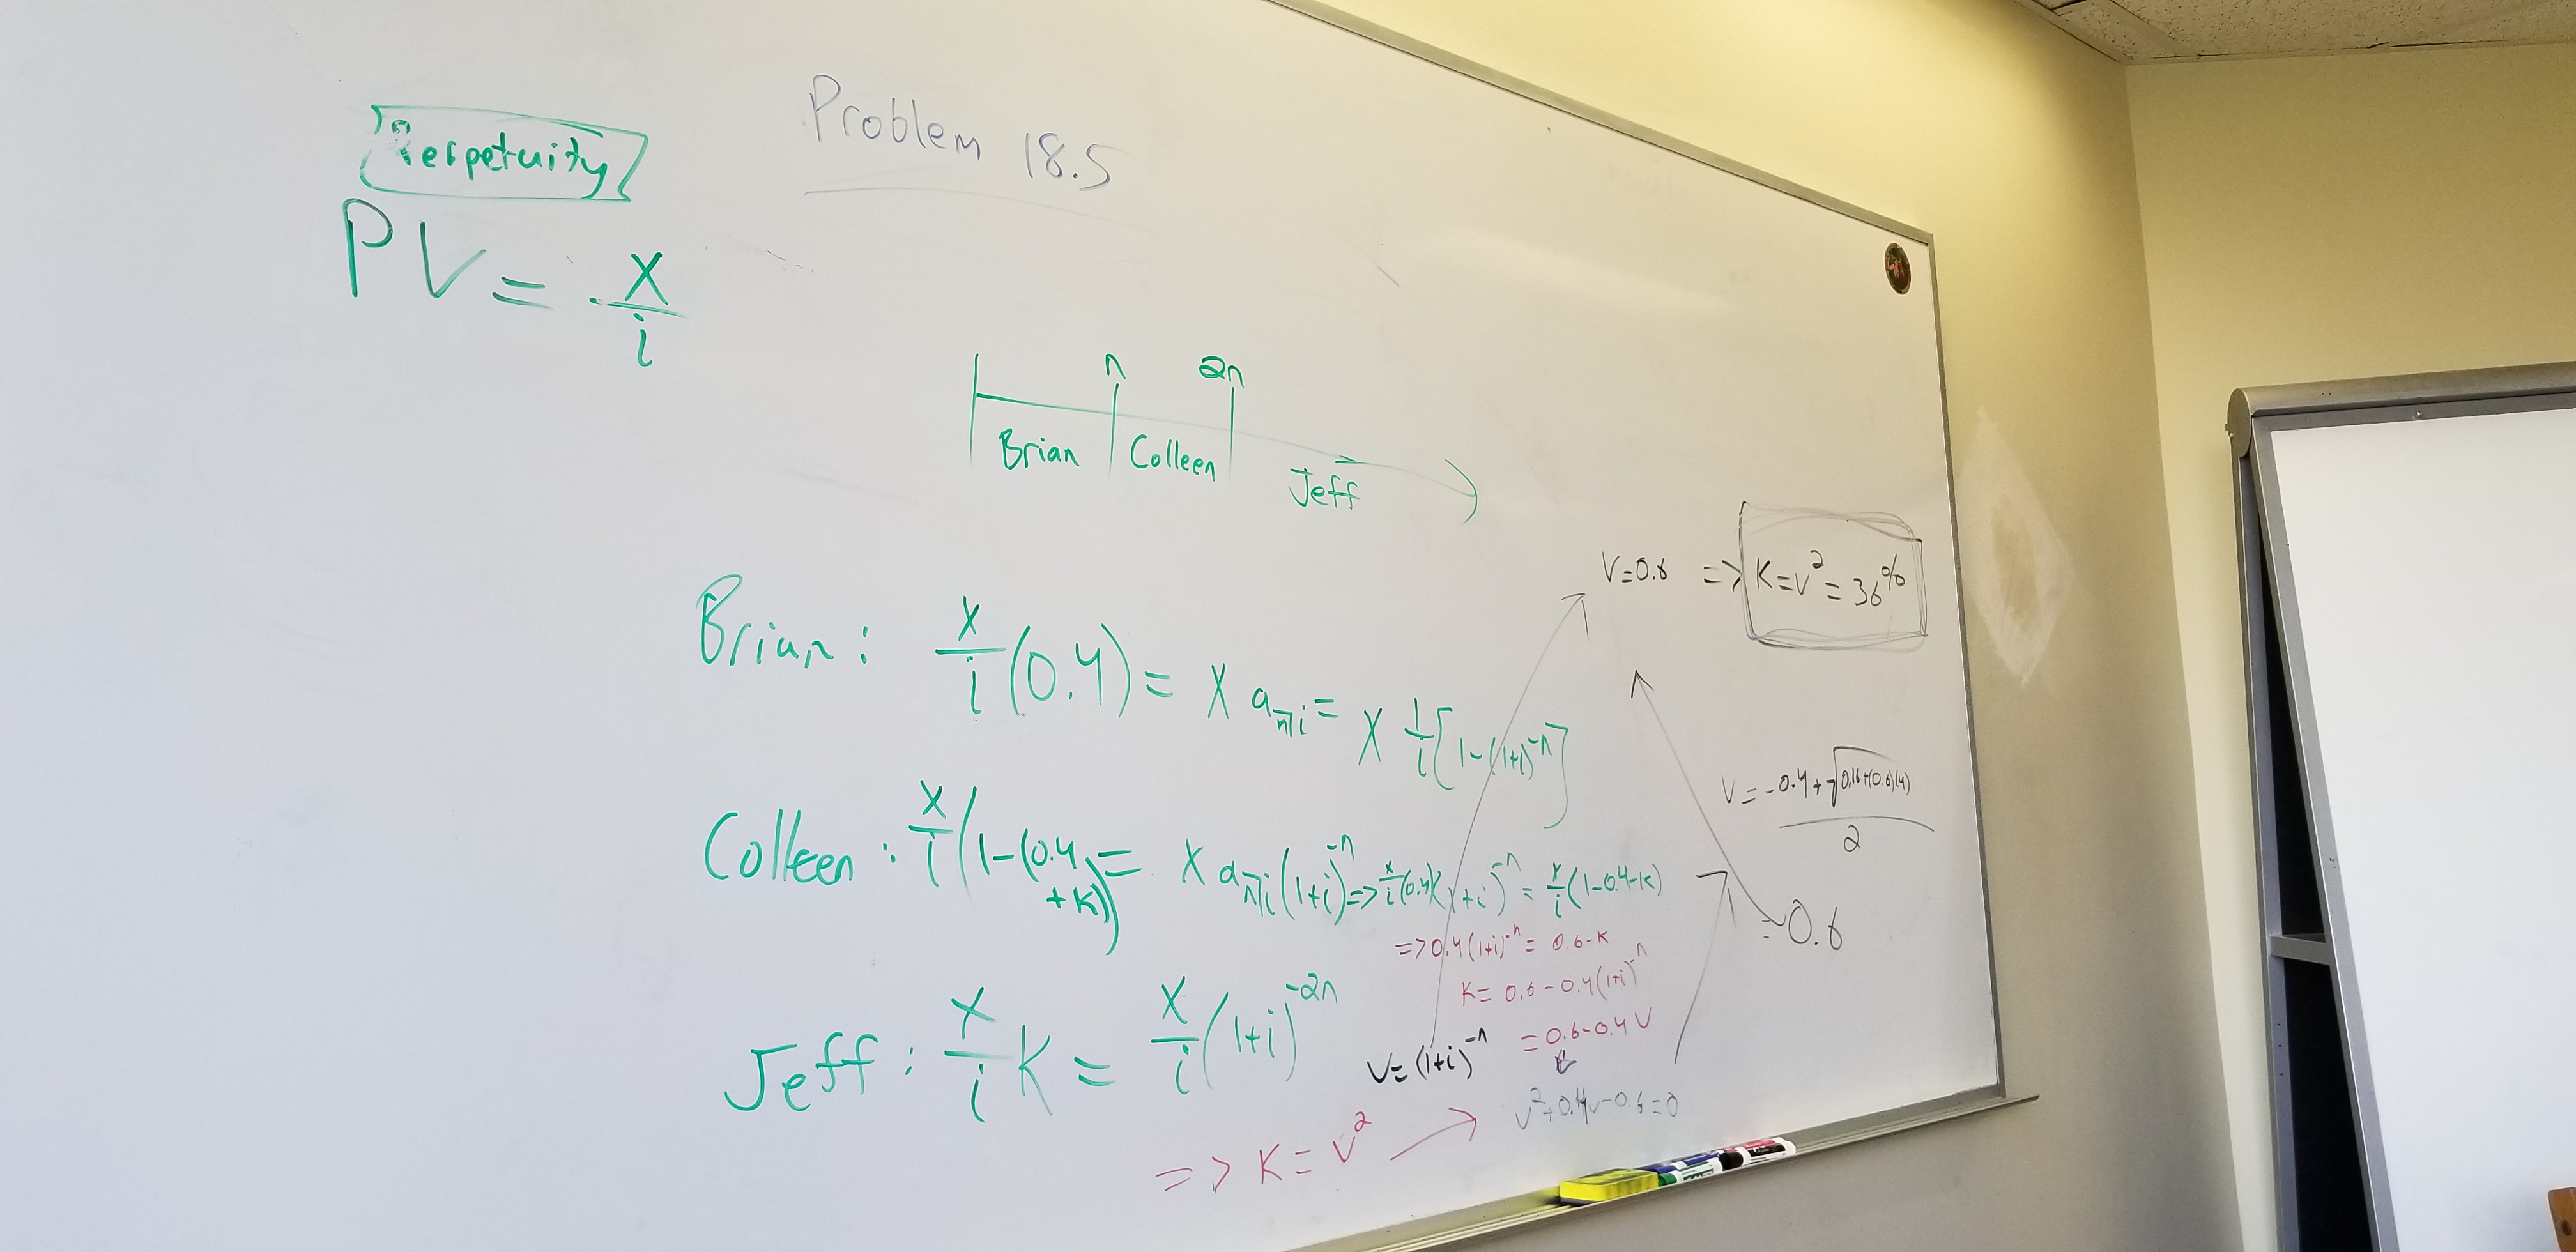 Perpetuity
Problem 18.5
PV = x/i
n 2n
Brian Colleen Jeff
Brian: x/i (0.4) = X a_n̅|i = X 1/i [1-(1+i)^-n]
Colleen: x/i (1-(0.4+K)) = X a_n̅|i (1+i)^-n => x/i (0.4)(1+i)^-n = x/i (1-0.4-K)
=> 0.4(1+i)^-n = 0.6-K
K = 0.6-0.4(1+i)^-n
= 0.6-0.4V
Jeff: x/i K = x/i (1+i)^-2n
V = (1+i)^-n
=> K = V^2
V^2+0.4V-0.6=0
V = -0.4+√(0.16+(0.6)(4)) / 2
= 0.6
V=0.6 => K=V^2=36%